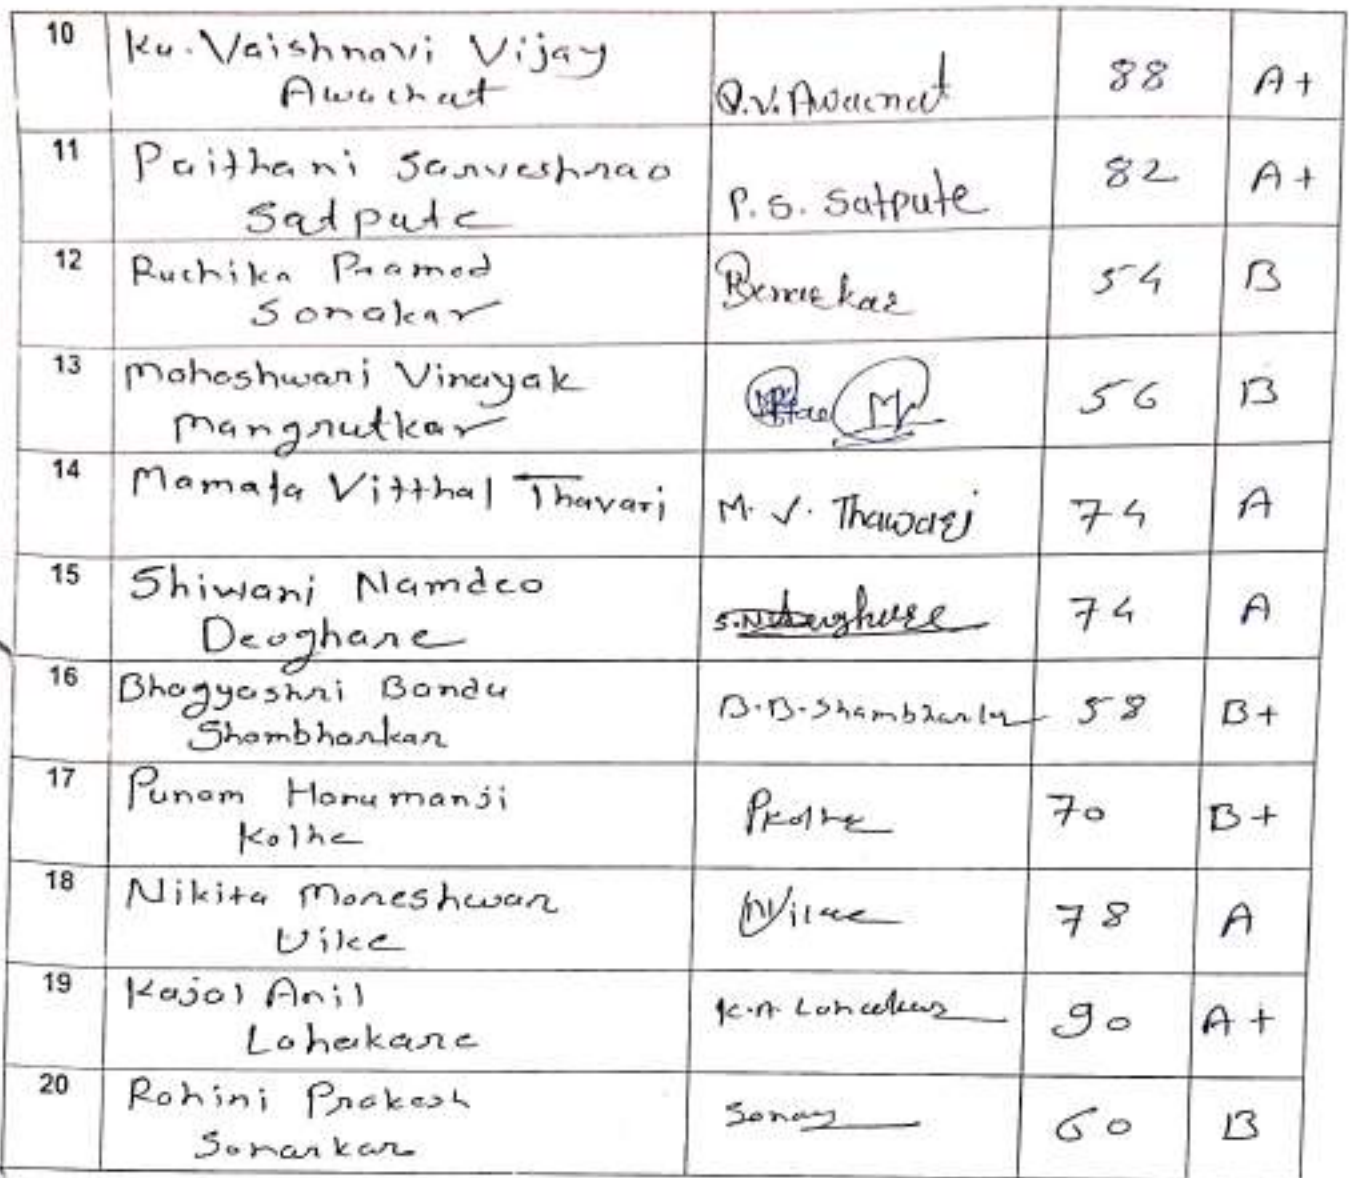 10 Ku. Vaishnavi Vijay
Awachat
Q.V. Awachat 88 A+
11 Paithani Sarveshrao
Satpute
P. S. Satpute 82 A+
12 Ruchika Pramod
Sonakar
54 B
13 Maheshwari Vinayak
Mangrutkar
M 56 B
14 Mamata Vitthal Thavari M. V. Thawari 74 A
15 Shiwani Namdeo
Deoghare
74 A
16 Bhagyashri Bandu
Shambharkar
B.B. Shambharkar 58 B+
17 Punam Hanumanji
Kolhe
PKolhe 70 B+
18 Nikita Moreshwar
Uike
78 A
19 Kajal Anil
Lohakare
K.A. 90 A+
20 Rohini Prakash
Sonarkar
60 B